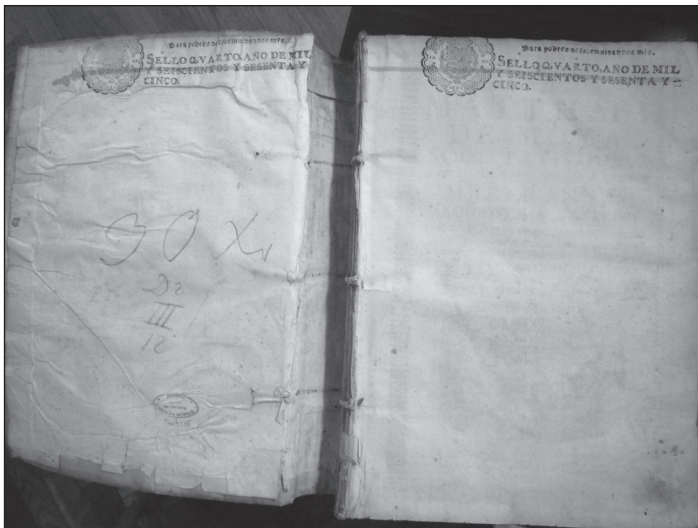 Para pobres de solemnidad dos mrs.
SELLO QVARTO, AÑO DE MIL
Y SEISCIENTOS Y SESENTA Y
CINCO.
D2
III
12
Para pobres de solemnidad dos mrs.
SELLO QVARTO, AÑO DE MIL
Y SEISCIENTOS Y SESENTA Y
CINCO.